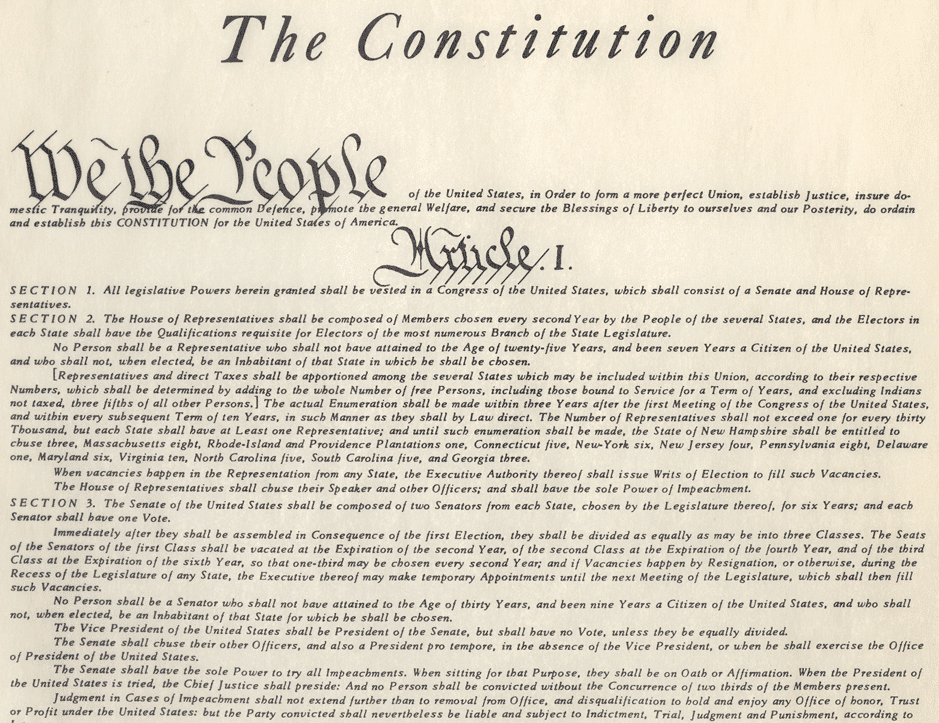 The Constitution
We the People of the United States, in Order to form a more perfect Union, establish Justice, insure do-
mestic Tranquility, provide for the common Defence, promote the general Welfare, and secure the Blessings of Liberty to ourselves and our Posterity, do ordain
and establish this CONSTITUTION for the United States of America.
Article. I.
SECTION 1. All legislative Powers herein granted shall be vested in a Congress of the United States, which shall consist of a Senate and House of Repre-
sentatives.
SECTION 2. The House of Representatives shall be composed of Members chosen every second Year by the People of the several States, and the Electors in
each State shall have the Qualifications requisite for Electors of the most numerous Branch of the State Legislature.
No Person shall be a Representative who shall not have attained to the Age of twenty-five Years, and been seven Years a Citizen of the United States,
and who shall not, when elected, be an Inhabitant of that State in which he shall be chosen.
[Representatives and direct Taxes shall be apportioned among the several States which may be included within this Union, according to their respective
Numbers, which shall be determined by adding to the whole Number of free Persons, including those bound to Service for a Term of Years, and excluding Indians
not taxed, three fifths of all other Persons.] The actual Enumeration shall be made within three Years after the first Meeting of the Congress of the United States,
and within every subsequent Term of ten Years, in such Manner as they shall by Law direct. The Number of Representatives shall not exceed one for every thirty
Thousand, but each State shall have at Least one Representative; and until such enumeration shall be made, the State of New Hampshire shall be entitled to
chuse three, Massachusetts eight, Rhode-Island and Providence Plantations one, Connecticut five, New-York six, New Jersey four, Pennsylvania eight, Delaware
one, Maryland six, Virginia ten, North Carolina five, South Carolina five, and Georgia three.
When vacancies happen in the Representation from any State, the Executive Authority thereof shall issue Writs of Election to fill such Vacancies.
The House of Representatives shall chuse their Speaker and other Officers; and shall have the sole Power of Impeachment.
SECTION 3. The Senate of the United States shall be composed of two Senators from each State, chosen by the Legislature thereof, for six Years; and each
Senator shall have one Vote.
Immediately after they shall be assembled in Consequence of the first Election, they shall be divided as equally as may be into three Classes. The Seats
of the Senators of the first Class shall be vacated at the Expiration of the second Year, of the second Class at the Expiration of the fourth Year, and of the third
Class at the Expiration of the sixth Year, so that one-third may be chosen every second Year; and if Vacancies happen by Resignation, or otherwise, during the
Recess of the Legislature of any State, the Executive thereof may make temporary Appointments until the next Meeting of the Legislature, which shall then fill
such Vacancies.
No Person shall be a Senator who shall not have attained to the Age of thirty Years, and been nine Years a Citizen of the United States, and who shall
not, when elected, be an Inhabitant of that State for which he shall be chosen.
The Vice President of the United States shall be President of the Senate, but shall have no Vote, unless they be equally divided.
The Senate shall chuse their other Officers, and also a President pro tempore, in the absence of the Vice President, or when he shall exercise the Office
of President of the United States.
The Senate shall have the sole Power to try all Impeachments. When sitting for that Purpose, they shall be on Oath or Affirmation. When the President of
the United States is tried, the Chief Justice shall preside: And no Person shall be convicted without the Concurrence of two thirds of the Members present.
Judgment in Cases of Impeachment shall not extend further than to removal from Office, and disqualification to hold and enjoy any Office of honor, Trust
or Profit under the United States: but the Party convicted shall nevertheless be liable and subject to Indictment, Trial, Judgment and Punishment, according to